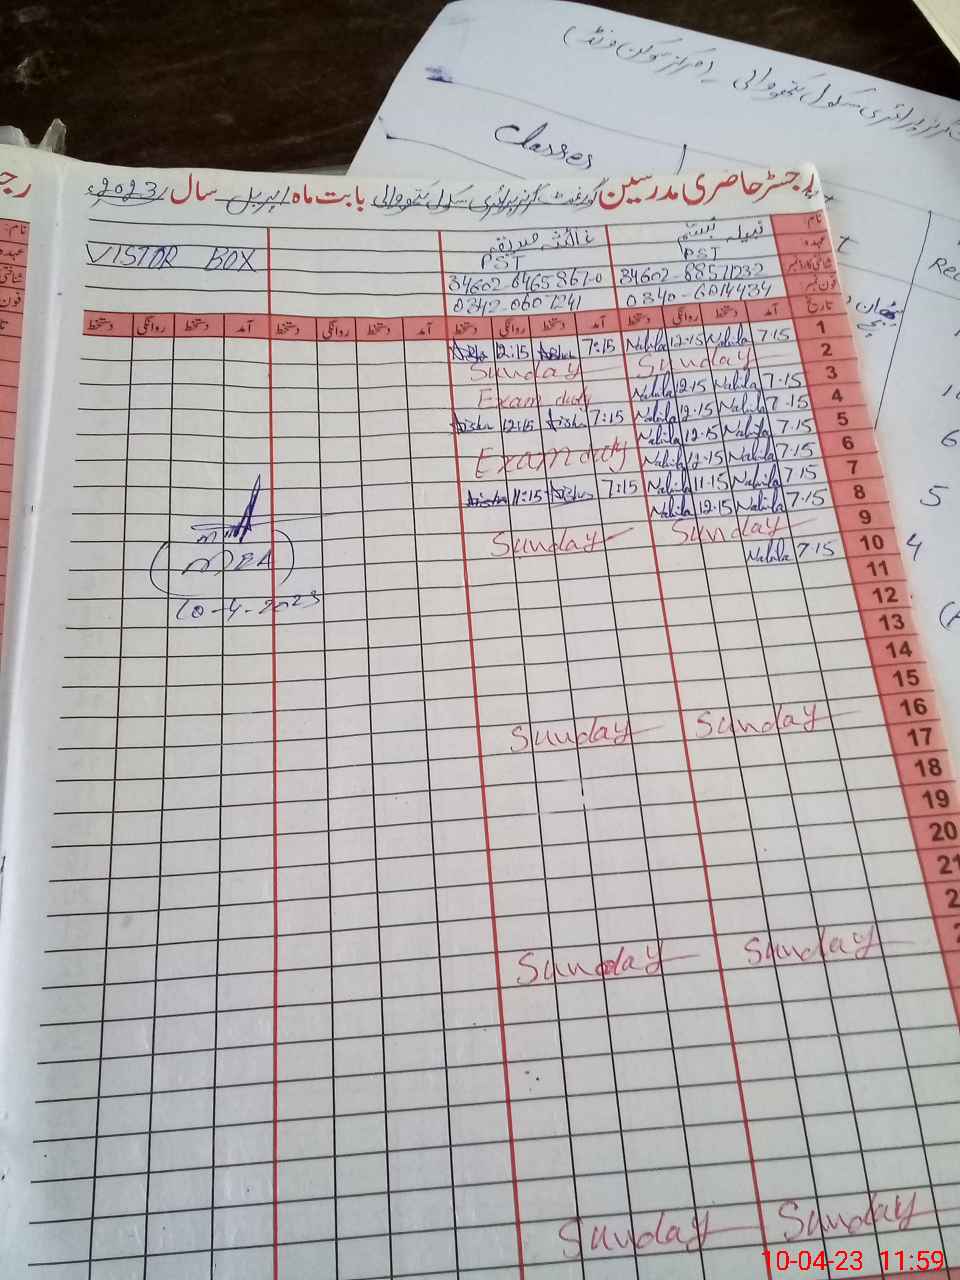 گرلز پرائمری سکول
Classes
رجسٹر حاضری مدرسین گورنمنٹ گرلز پرائمری سکول بابت ماہ اپریل سال 2023ء
نام:
نبیلہ تبسم
عہدہ
VISTOR BOX
PST
PST
34602-8857123-2
فون نمبر
0342-0607241
0340-6014434
تاریخ
آمد دستخط روانگی دستخط آمد دستخط روانگی دستخط آمد دستخط روانگی دستخط آمد دستخط روانگی دستخط
1 7.15 Nabila 12.15 Nabila 7:15 Aisha 12:15 Aisha
2 Sunday Sunday
3 7.15 Nabila 12.15 Nabila Exam duty
4 7.15 Nabila 12.15 Nabila 7:15 Aisha 12:15 Aisha
5 7.15 Nabila 12.15 Nabila
6 7.15 Nabila 12.15 Nabila Exam duty
7 7.15 Nabila 11.15 Nabila 7:15 Aisha 11:15 Aisha
8 7.15 Nabila 12.15 Nabila
9 Sunday Sunday
10 7.15 Nabila
MEA
10-4-2023
11
12
13
14
15
16 Sunday Sunday
17
18
19
20
21
Sunday Sunday
Sunday Sunday
6
5
4
10-04-23 11:59